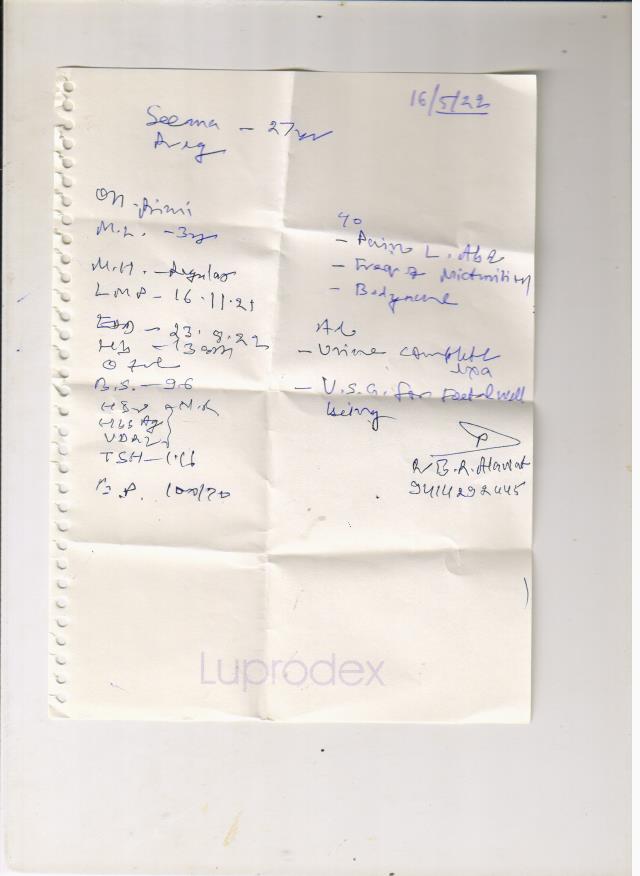 16/5/22
Seema - 27yr
Preg
M.L. - 3yr
M.H. - Regular
LMP - 16.11.21
EDD - 23.8.22
Hb - 13 gm
O +ve
B.S. - 96
HBsAg
VDRL
TSH - 1.16
B.P. 100/70
C/o
- Pain L. Abd
- Freq of Micturition
- Bodyache
Ad
- Urine complete
- U.S.G. for Foetal well
being
9414292445
Luprodex